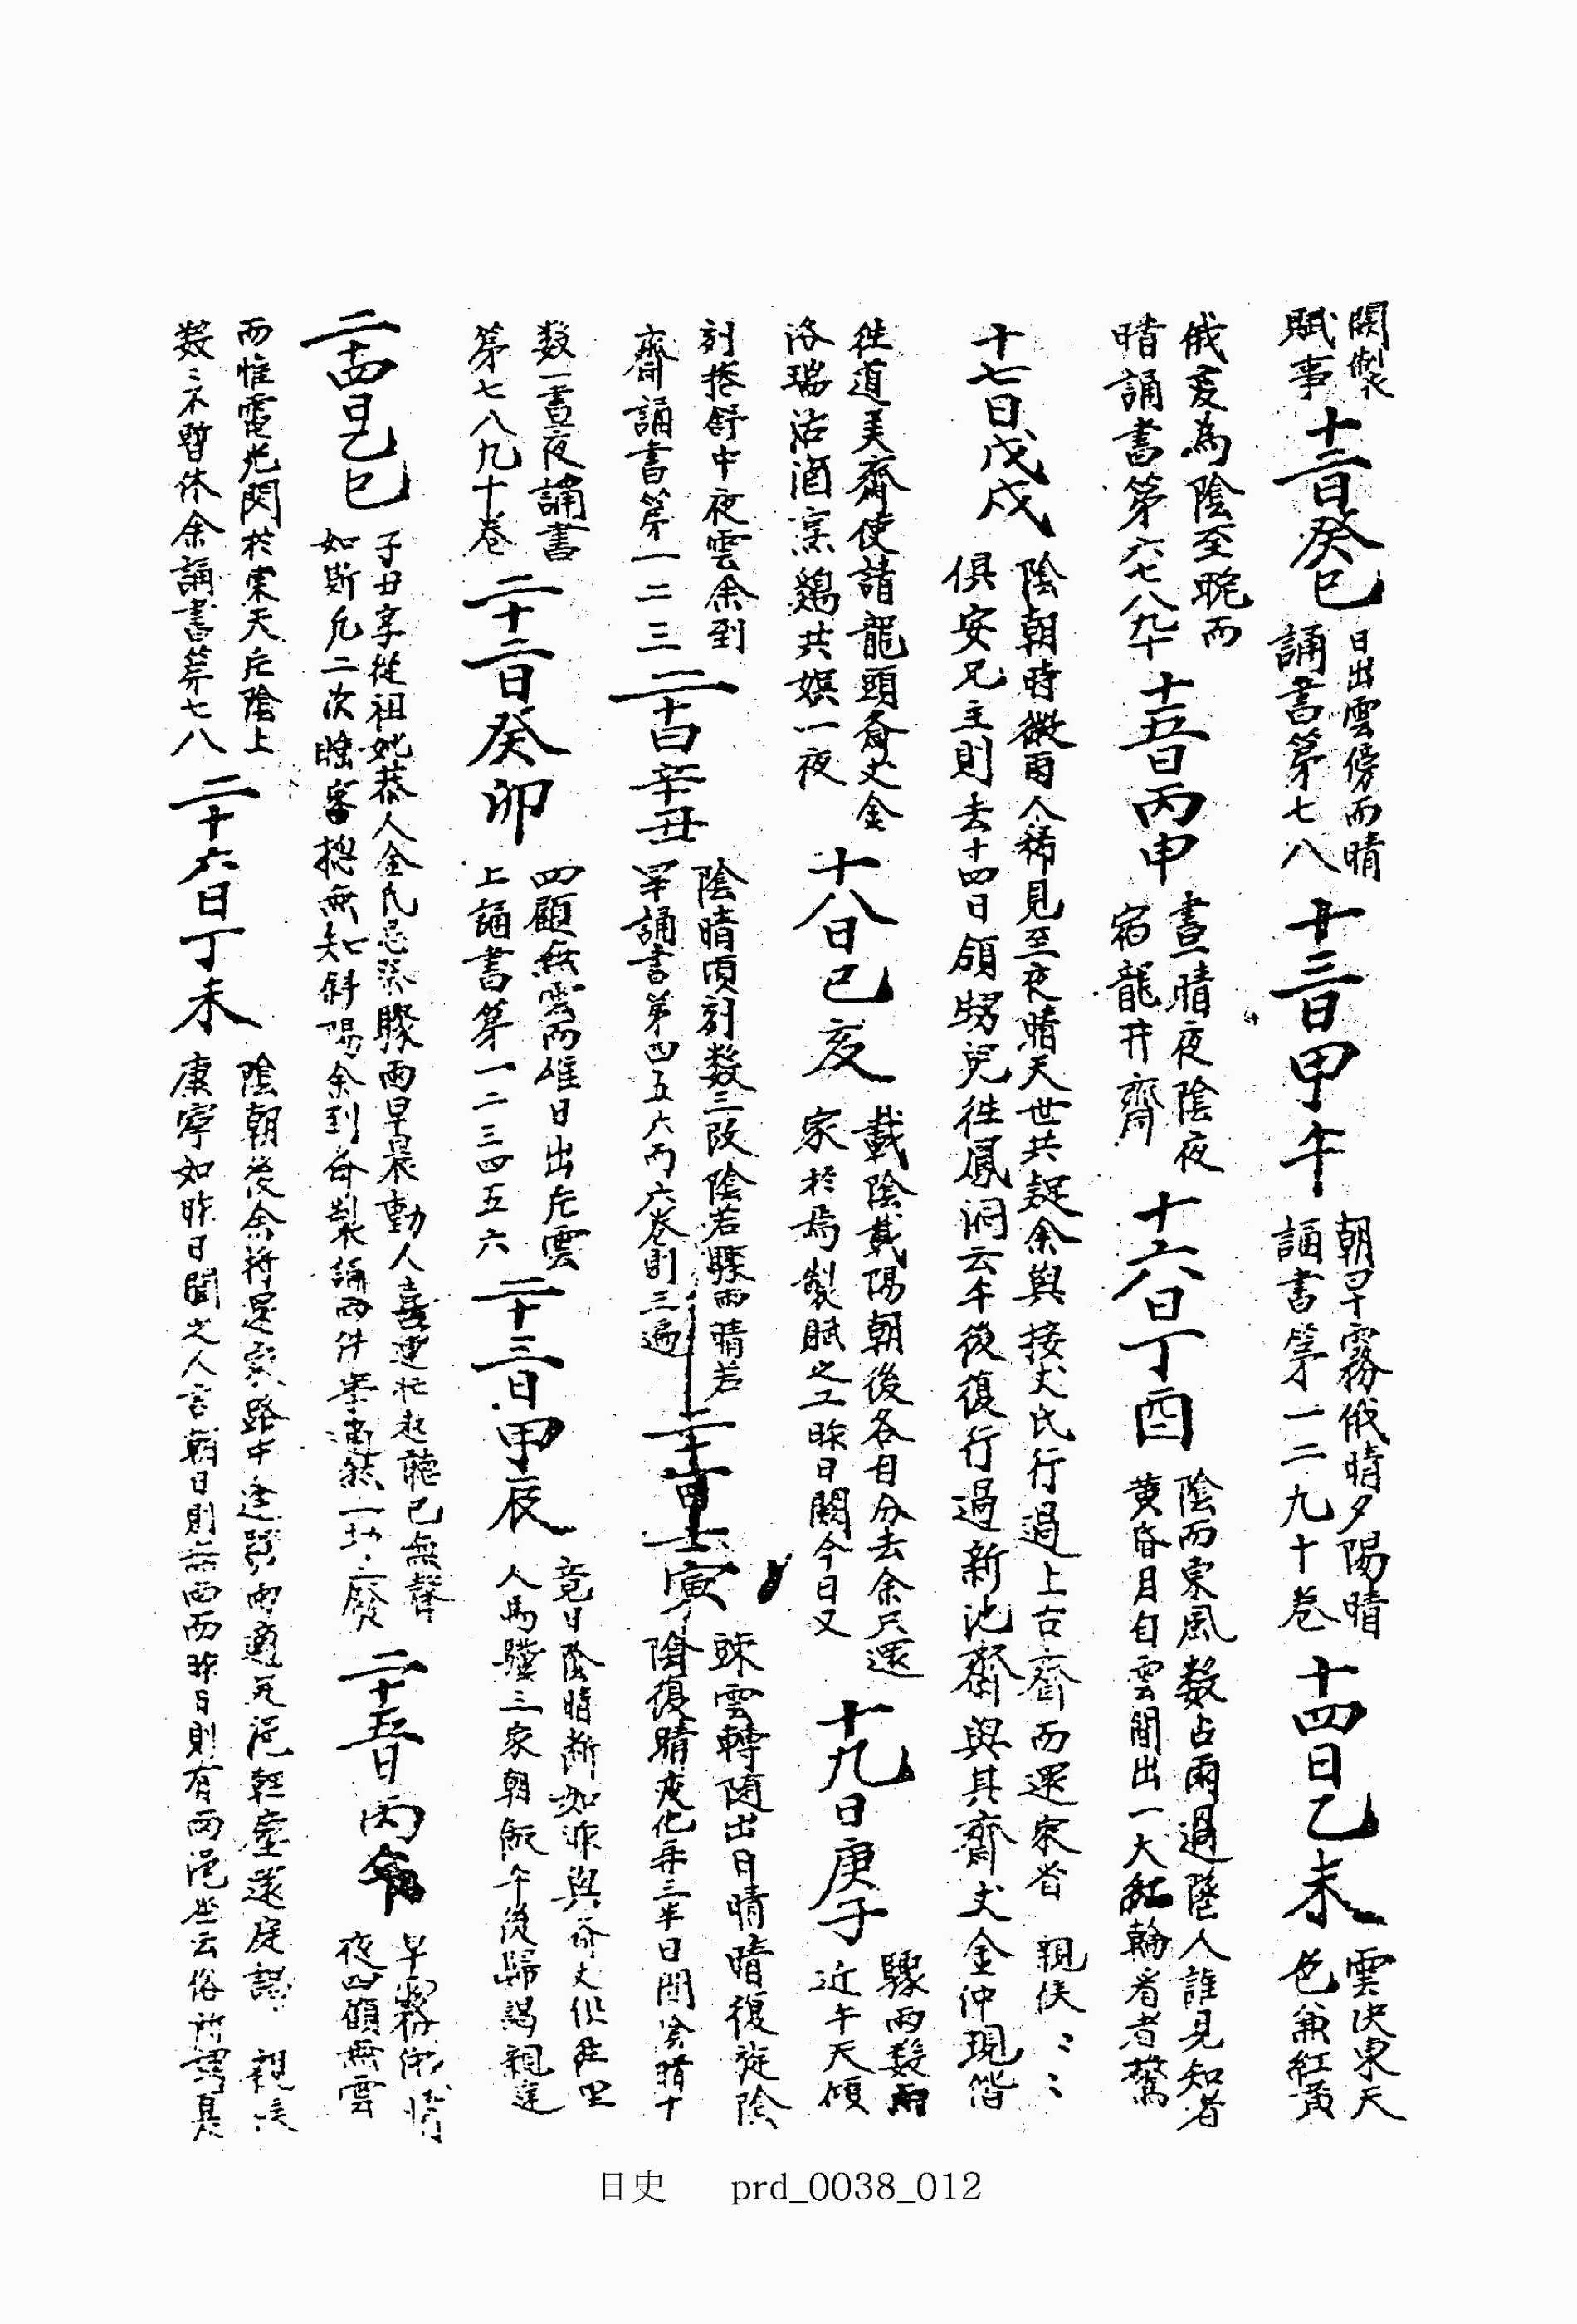 闕製
賦事
十二日癸巳
日出雲傍而晴
誦書第七八
十三日甲午
朝早霧俄晴夕陽晴
誦書第一二九十卷
十四日乙未
雲決東天
色兼紅黃
俄変為陰至晩而
晴誦書第六七八九十
十五日丙申
晝晴夜陰夜
宿龍井齋
十六日丁酉
陰而東風数占雨過陸人誰見知者
黄昏月自雲間出一大紅輪看者驚
十七日戊戌
陰朝時微雨人稀見至夜晴天世共疑余與接丈氏行過上古齋而還家省 親候〻〻
俱安兄主則去十四日領甥兒徃鳳洞云午後復行過新池齋與其齋丈金仲現偕
徃道美齋使請龍頭齋丈金
洛瑞沽酒烹鷄共娯一夜
十八日己亥
載陰載陽朝後各自分去余只還
家於焉製賦之工昨日闕今日又
十九日庚子
驟雨数雨
近午天傾
刻捲舒中夜雲余到
齋誦書第一二三
二十日辛丑
陰晴頃刻数三改陰若驟雨晴若
誦書第四五六而六卷則三遍
二十一日壬寅
雲轉随出日晴晴復旋陰
陰復晴変化再三半日間陰晴十
数一晝夜誦書
第七八九十卷
二十二日癸卯
四顧無雲而唯日出左雲
上誦書第一二三四五六
二十三日甲辰
竟日陰晴漸如昨與齋丈作伴里
人馬驥三家朝飯午後歸謁親庭
二十四日乙巳
子丑享從祖妣恭人金氏忌祭驟雨早晨動人喜連忙起聽已無聲
如斯凡二次 客摠無知斜陽余到齋製誦兩件 一功廢
二十五日丙午
早霧俄晴
夜四顧無雲
而惟電光閃於東天左陰上
数〻不暫休余誦書第七八
二十六日丁未
陰朝後余將還家路中逢 雨適 浥輕塵遂庭謁 親候
康寧如昨日聞之人言朝日則無雨而昨日則有雨浥塵云俗所謂是
日史 prd_0038_012